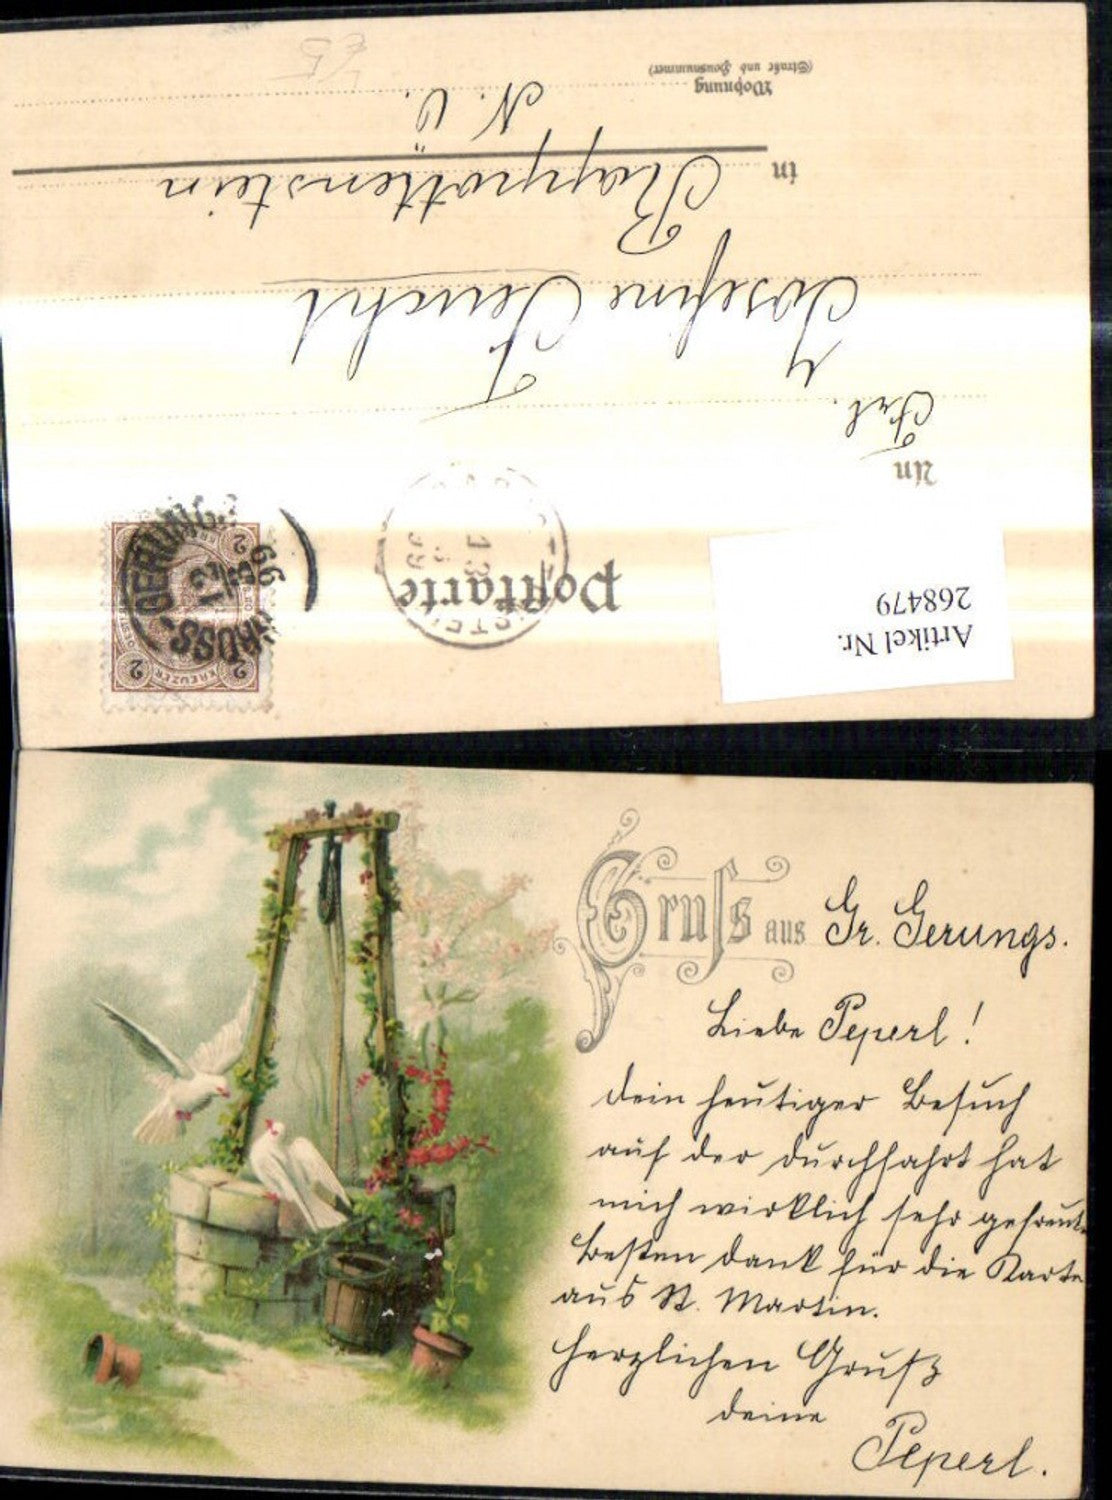 Postkarte
An
Frl.
Josefine Feucht
in Rappottenstein
N. Ö.
Wohnung
(Straße und Hausnummer)
Artikel Nr.
268479
2 KREUZER 2
2
GROSS-GERUNGS
13
99
13
99
Gruss aus Gr. Gerungs.
Liebe Peperl!
Dein heutiger Besuch
auf der Durchfahrt hat
mich wirklich sehr gefreut.
Besten Dank für die Karte
aus St. Martin.
Herzlichen Gruß
deine
Peperl.